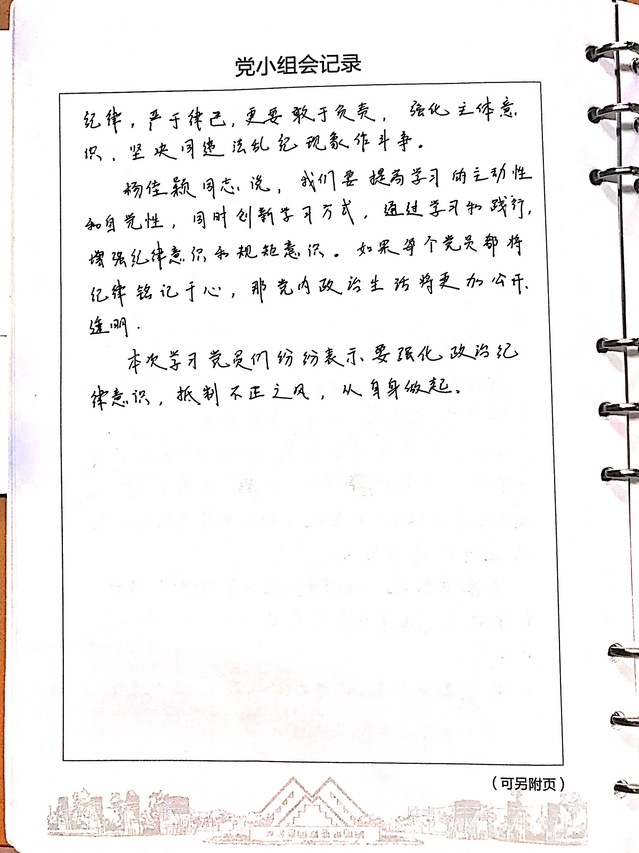 党小组会记录
纪律，严于律己，更要敢于负责，强化主体意
识，坚决同违法乱纪现象作斗争。
杨佳颖同志说，我们要提高学习的主动性
和自觉性，同时创新学习方式，通过学习和践行，
增强纪律意识和规矩意识。如果每个党员都将
纪律铭记于心，那党内政治生活将更加公开、
透明．
本次学习党员们纷纷表示要强化政治纪
律意识，抵制不正之风，从自身做起。
（可另附页）